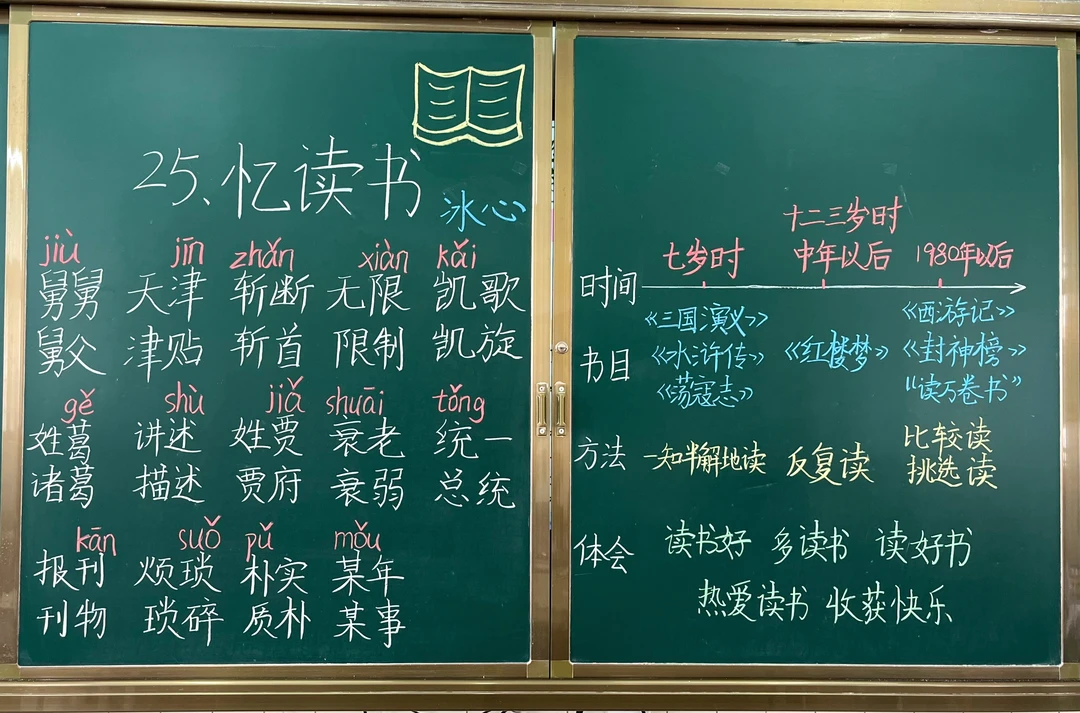 25、忆读书
冰心
jiù jīn zhǎn xiàn kǎi
舅舅 天津 斩断 无限 凯歌
舅父 津贴 斩首 限制 凯旋
gě shù jiǎ shuāi tǒng
姓葛 讲述 姓贾 衰老 统一
诸葛 描述 贾府 衰弱 总统
kān suǒ pǔ mǒu
报刊 烦琐 朴实 某年
刊物 琐碎 质朴 某事
十二三岁时
七岁时 中年以后 1980年以后
时间
《三国演义》 《西游记》
书目 《水浒传》 《红楼梦》 《封神榜》
《荡寇志》 “读万卷书”
方法 一知半解地读 反复读 比较读
挑选读
体会 读书好 多读书 读好书
热爱读书 收获快乐